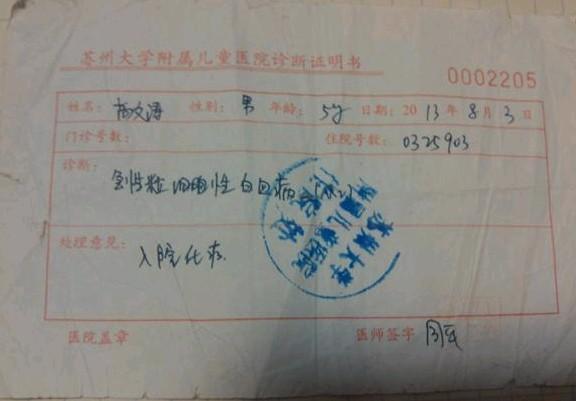 苏州大学附属儿童医院诊断证明书
0002205
姓名: 杨文涛 性别: 男 年龄: 5岁 日期: 2013年8月3日
门诊号数: 住院号数: 0325903
诊断: 急性粒细胞性白血病
处理意见: 入院化疗
医院盖章 医师签字
苏州大学
附属儿童医院